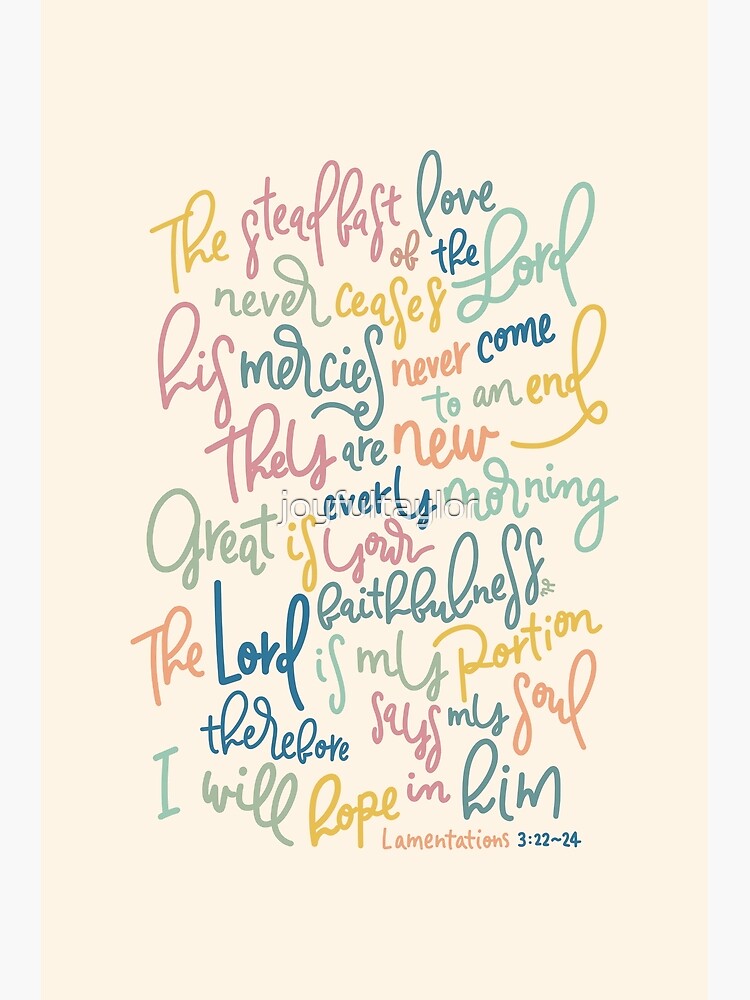 The steadfast love
of the Lord
never ceases
his mercies never come
to an end
They are new
every morning
Great is your
faithfulness
The Lord is my portion
says my soul
therefore
I will hope in him
Lamentations 3:22~24
joyfultaylor
joyfultaylor